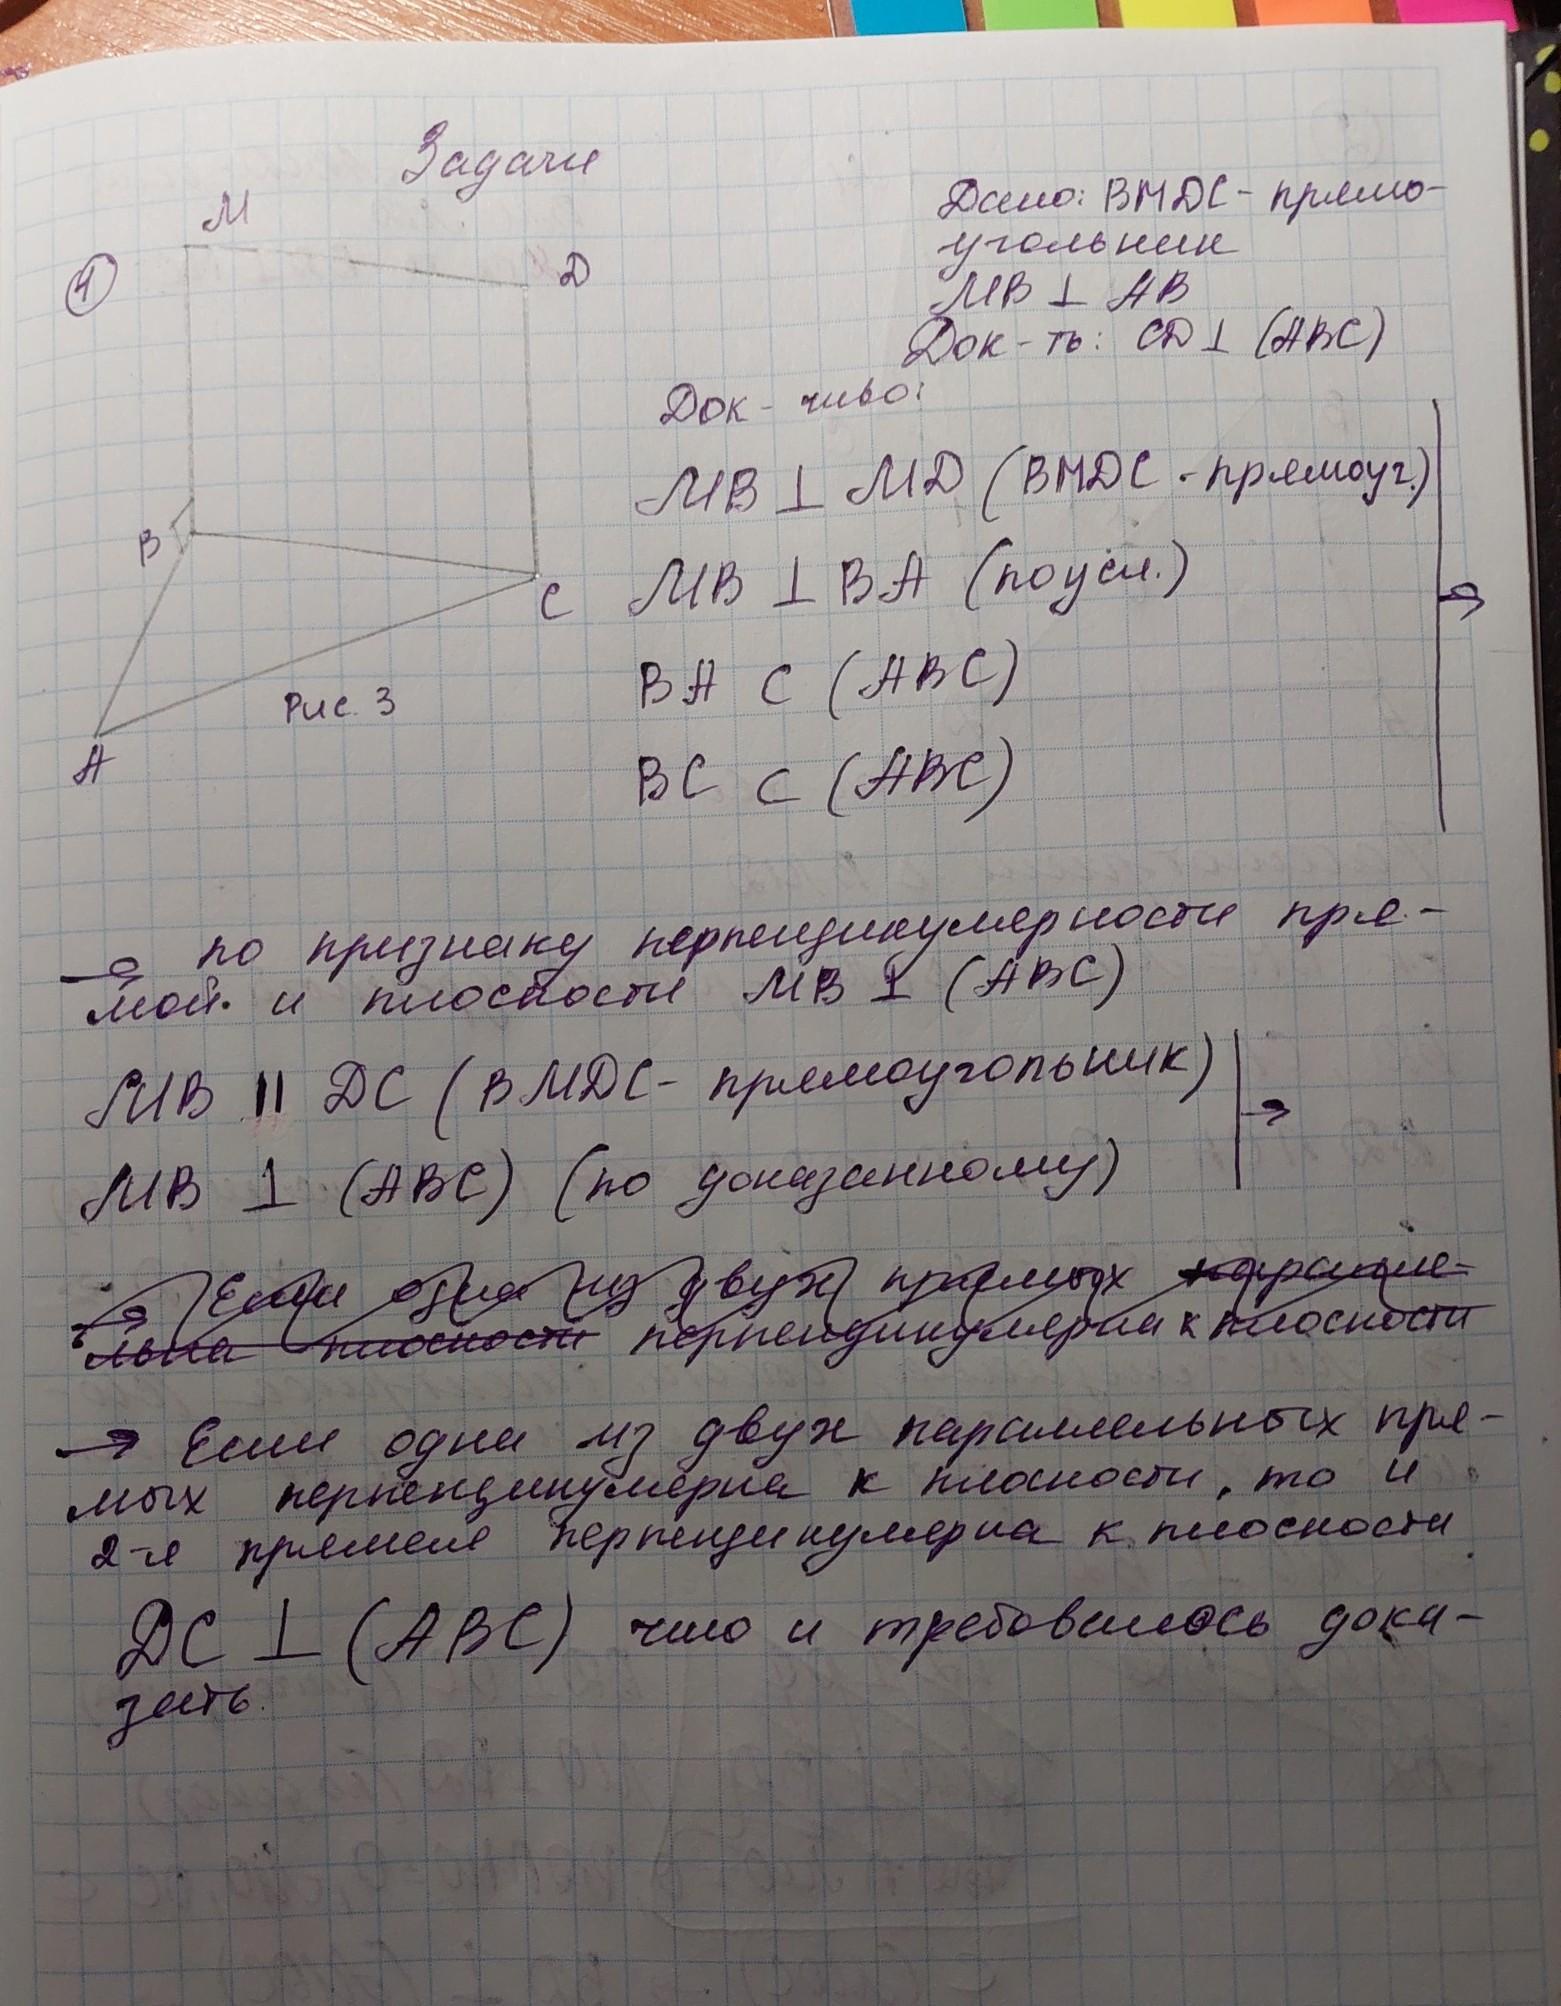 Задачи
М
Д
1
В
С
А
Рис. 3
Дано: ВМДС - прямо-
угольник
МВ ⊥ АВ
Док-ть: СД ⊥ (АВС)
Док-тво:
МВ ⊥ МД (ВМДС - прямоуг.)
МВ ⊥ ВА (по усл.)
ВА ⊂ (АВС)
ВС ⊂ (АВС)
→ по признаку перпендикулярности пря-
мой и плоскости МВ ⊥ (АВС)
МВ || DC (ВМДС - прямоугольник) →
МВ ⊥ (АВС) (по доказанному)
→ Если одна из двух прямых паралле-
льна плоскости перпендикулярна к плоскости
→ Если одна из двух параллельных пря-
мых перпендикулярна к плоскости, то и
2-я прямая перпендикулярна к плоскости
DC ⊥ (АВС) что и требовалось дока-
зать.